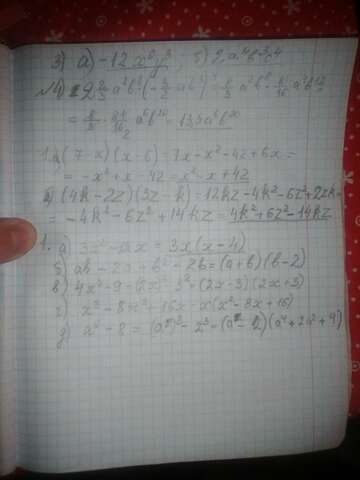 3) а) -12x⁶y³; б) 2a⁴b³c⁴
= 8/3 · 81/16 a⁶b²⁰ = 13,5a⁶b²⁰
1. а) (7-x)(x-6) = 7x-x²-42+6x =
= -x²+x-42 = x²-x+42
б) (4k-2z)(3z-k) = 12kz-4k²-6z²+2zk=
= -4k²-6z²+14kz = 4k²+6z²-14kz
1. а) 3x²-12x = 3x(x-4)
б) ab-2a+b²-2b=(a+b)(b-2)
в) 4x²-9=(2x)²-3²=(2x-3)(2x+3)
г) x³-8x²+16x=x(x²-8x+16)
д) -8=(a²)³-2³=(a²-2)(a⁴+2a²+4)